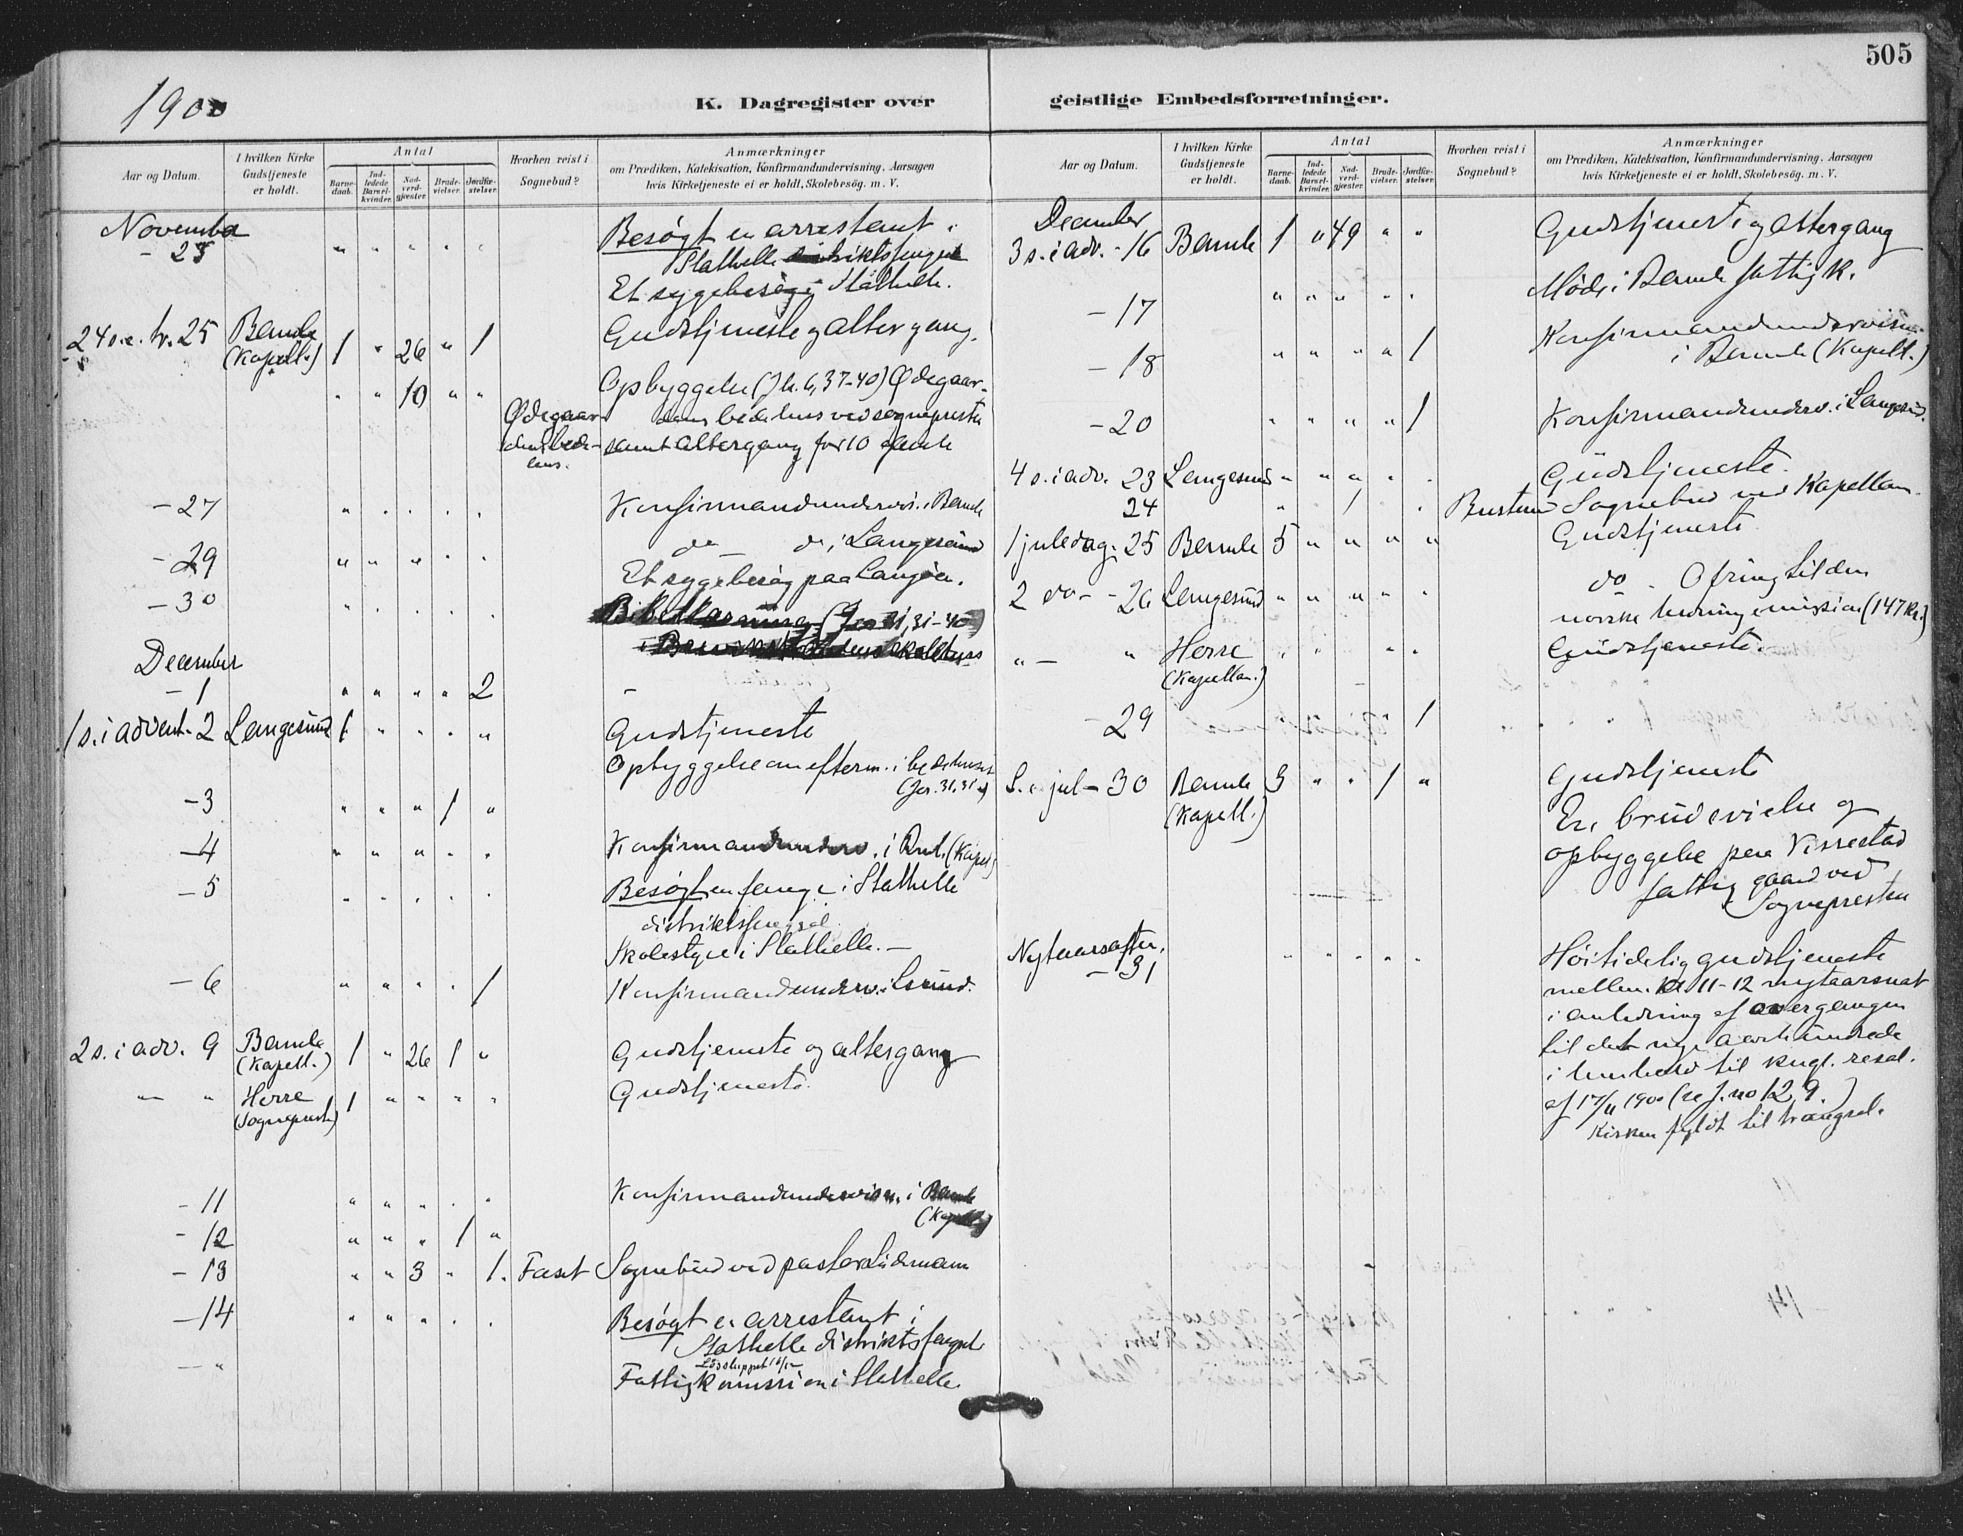 505
1900
K. Dagregister over geistlige Embedsforretninger.
Aar og Datum.
I hvilken Kirke Gudstjeneste er holdt.
Antal
Barnedaab.
Indledede Barselkvinder.
Nadverdgjæster.
Brudevielser.
Jordfæstelser.
Hvorhen reist i Sognebud?
Anmærkninger
om Prædiken, Katekisation, Konfirmandundervisning, Aarsagen
hvis Kirketjeneste ei er holdt, Skolebesøg. m. V.
November
- 23 " " " " " Besøgt en arrestant i
Stathelle distriktsfengsel
Et sygebesøg i Stathelle.
24 s. e. tr. 25 Bamble (Kapell.) 1 " 26 " 1 Gudstjeneste og altergang.
" " 10 " " Opbyggelse (Jh. 6, 37-40) Ødegaar-
Ødegaardens bedehus. dens bedehus ved sognepresten
samt altergang for 10
- 27 " " " " " Konfirmandunderv. i Bamble
- 29 " " " " " do - do i Langesund
Et sygebesøg paa Langøen.
- 30 " " " " " Bibellæsning (Jer. 31, 31-40)
December
- 1 " " " " 2 -
1 s. i advent. 2 Langesund 1 " " " " Gudstjeneste
Opbyggelse om efterm. i bedehuset
(Jer. 31, 31)
- 3 " " " 1 "
- 4 " " " " " Konfirmandunderv. i (Kapel)
- 5 " " " " " Besøgt en fange i Stathelle
distriktsfengsel.
Skolestyre i Stathelle. -
- 6 " " " " 1 Konfirmandunderv. i Lsund.
2 s. i adv. 9 Bamble (Kapell.) 1 " 26 1 " Gudstjeneste og altergang
" " Herre (Sogneprest) 1 " " " " Gudstjeneste.
- 11 " " " " " Konfirmandundervisn. i Bamble
(Kapell)
- 12 " " " 1 "
- 13 " " 3 " 1. Faset Sognebud ved pastor Lidemann
- 14 " " " " " Besøgt en arrestant i
Stathelle distriktsfengsel
Løssluppet 16/12
- " Fattigkomission i Stathelle.
Aar og Datum.
I hvilken Kirke Gudstjeneste er holdt.
Antal
Barnedaab.
Indledede Barselkvinder.
Nadverdgjæster.
Brudevielser.
Jordfæstelser.
Hvorhen reist i Sognebud?
Anmærkninger
om Prædiken, Katekisation, Konfirmandundervisning, Aarsagen
hvis Kirketjeneste ei er holdt, Skolebesøg. m. V.
December
3 s. i adv. - 16 Bamble 1 " 49 " " Gudstjeneste og altergang
- 17 " " " " " Møde i Bamble fattigk.
- 18 " " " " 1 Konfirmandundervisn.
i Bamble (Kapell.)
- 20 " " " " 1 Konfirmandunderv. i Langesund.
4 s. i adv. 23 Langesund " " " " " Gudstjeneste.
24 " 1 " Sognebud ved Kapellan.
1 juledag. 25 Bamble 5 " " " " Gudstjeneste
2 do - - 26 Langesund " " " " " do - Ofring til den
norske hedningemission (147 Kr.)
" - " Herre (Kapellan.) " " " " Gudstjeneste.
- 29 " " 1
S. e. jul - 30 Bamble (Kapell.) 3 " " 1 " Gudstjeneste
En brudevielse og
opbyggelse paa Vissestad
fattiggaard ved
Sognepresten
Nytaarsaften.
- 31 " " " " " Høitidelig gudstjeneste
mellem kl 11-12 nytaarsnat
i anledning af overgangen
til det nye aarhundrede
i henhold til kngl. resol.
af 17/11 1900 (se J. no 129.)
Kirken fyldt til trængsel.